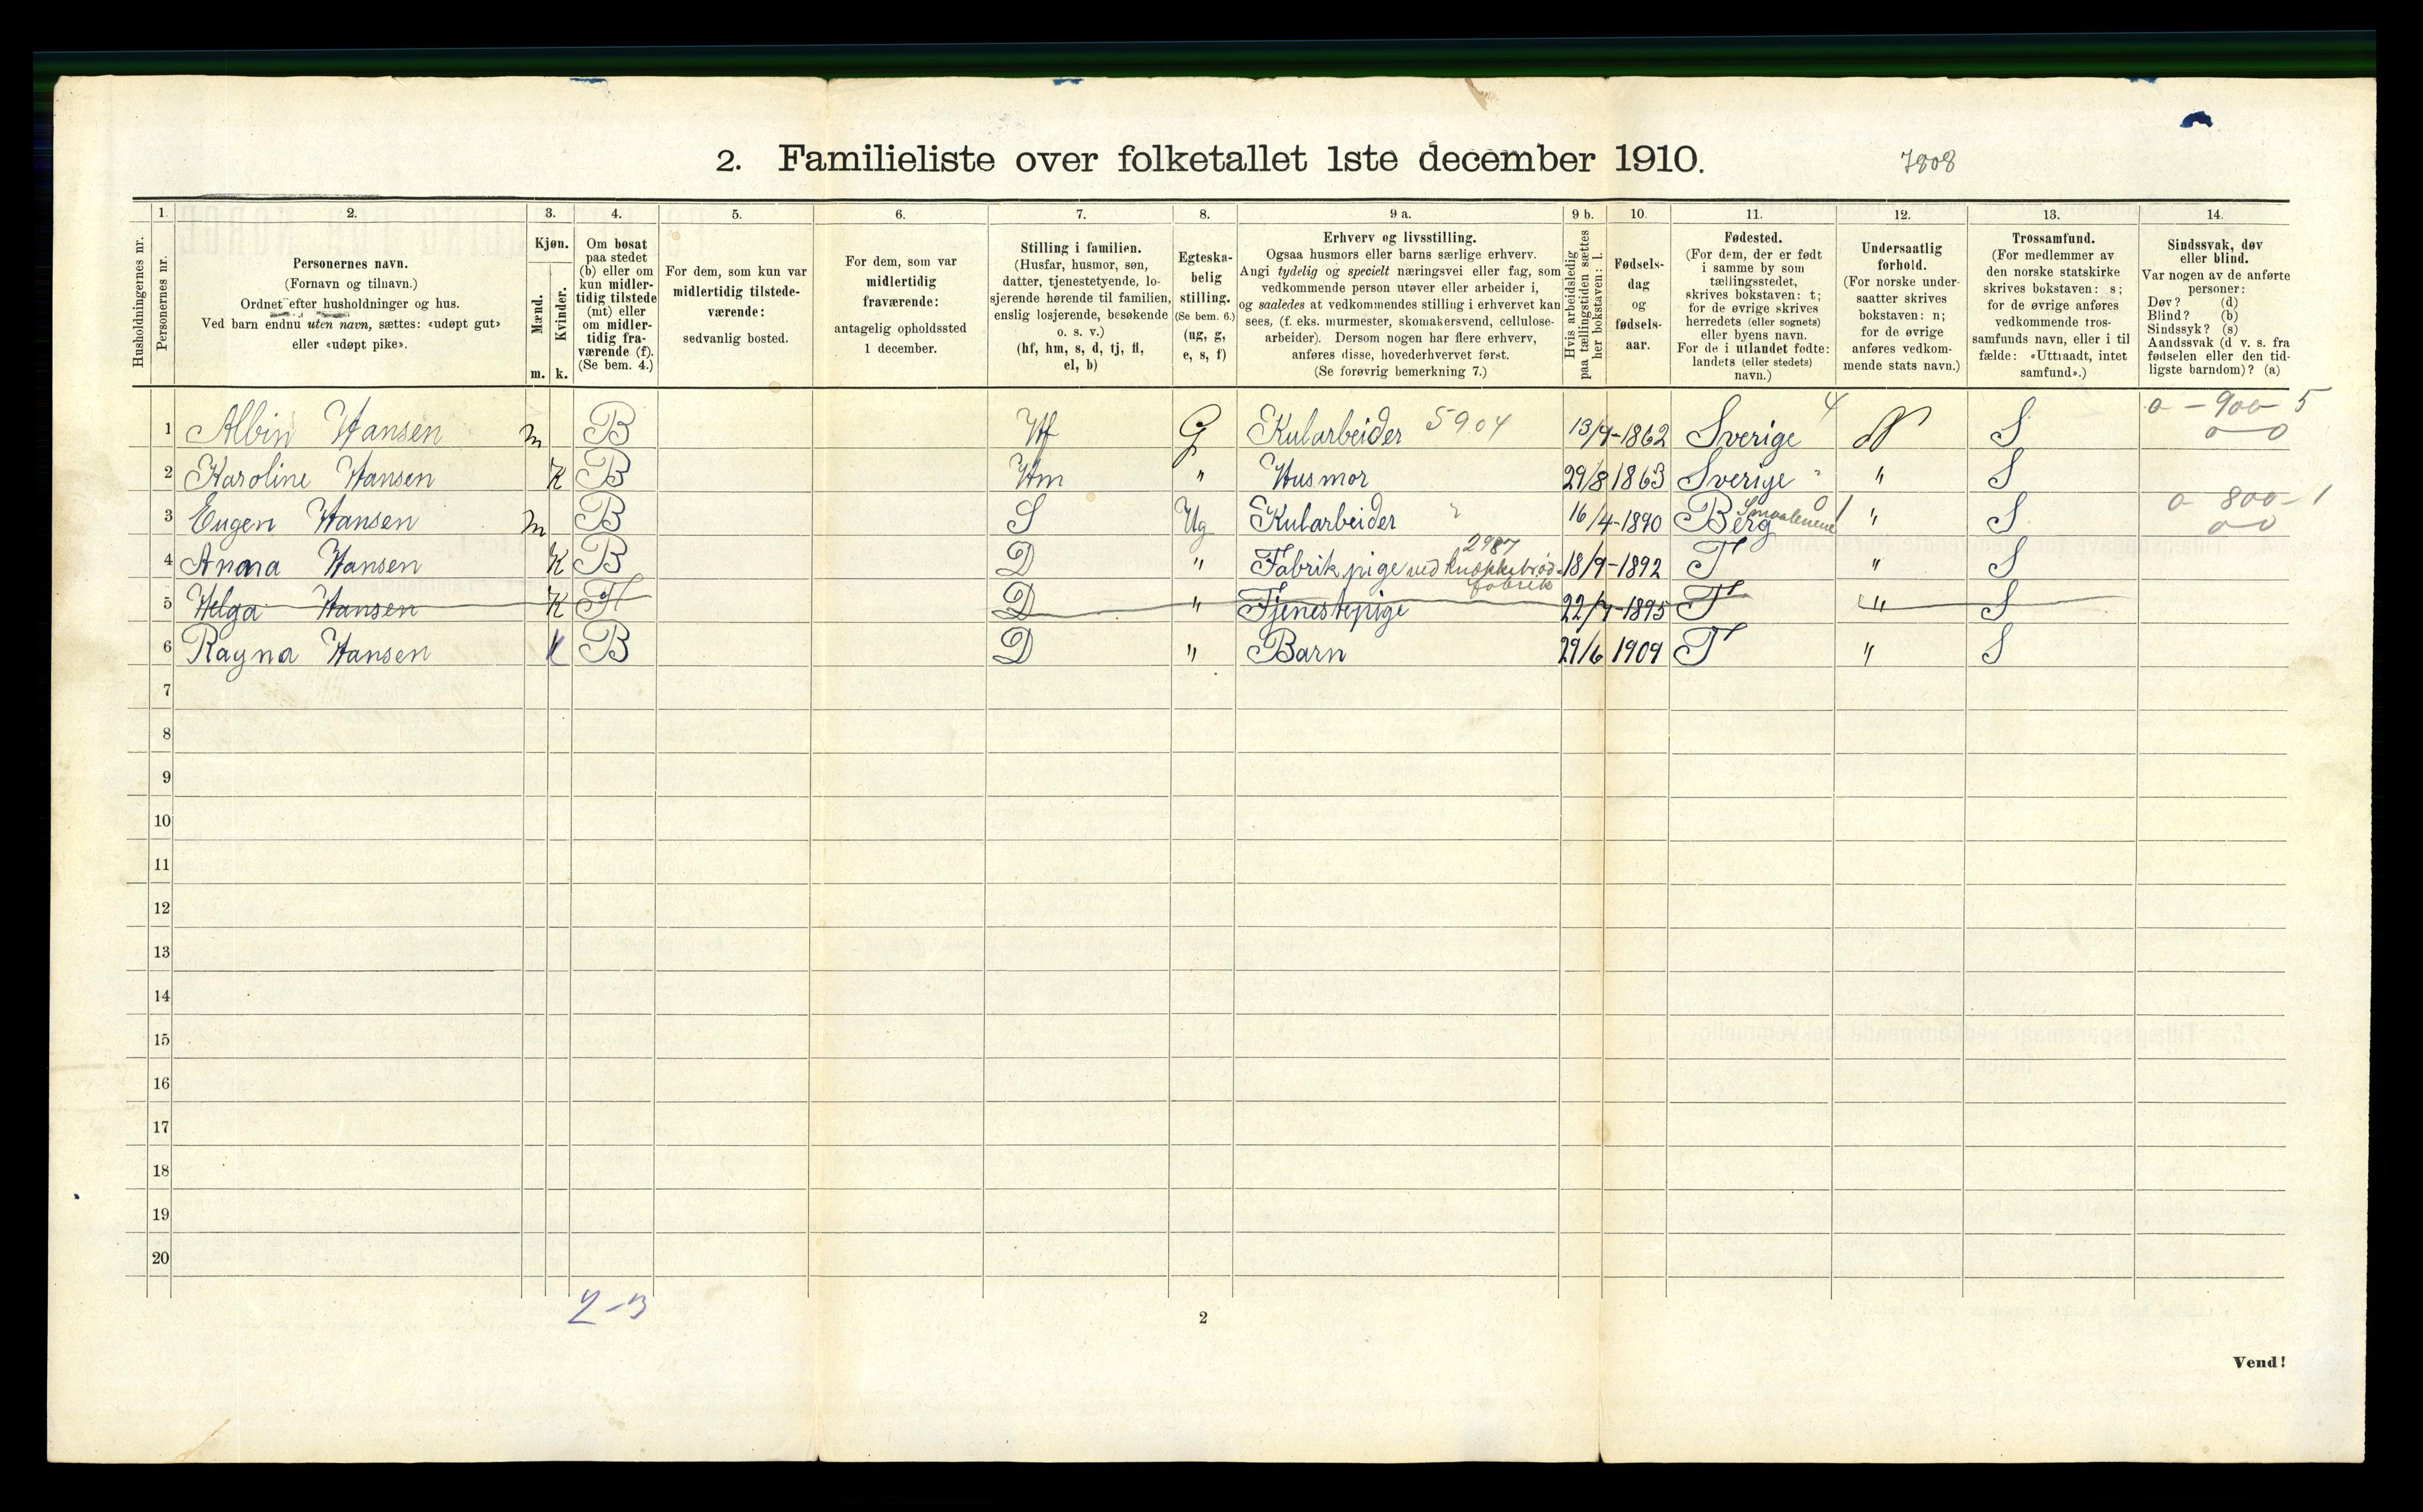 2. Familieliste over folketallet 1ste december 1910. 7808
1. 2. 3. 4. 5. 6. 7. 8. 9 a. 9 b. 10. 11. 12. 13. 14.
Husholdningernes nr.
Personernes nr.
Personernes navn.
(Fornavn og tilnavn.)
Ordnet efter husholdninger og hus.
Ved barn endnu uten navn, sættes: «udøpt gut»
eller «udøpt pike».
Kjøn.
Mænd.
Kvinder.
m. k.
Om bosat
paa stedet
(b) eller om
kun midler-
tidig tilstede
(mt) eller
om midler-
tidig fra-
værende (f).
(Se bem. 4.)
For dem, som kun var
midlertidig tilstede-
værende:
sedvanlig bosted.
For dem, som var
midlertidig
fraværende:
antagelig opholdssted
1 december.
Stilling i familien.
(Husfar, husmor, søn,
datter, tjenestetyende, lo-
sjerende hørende til familien,
enslig losjerende, besøkende
o. s. v.)
(hf, hm, s, d, tj, fl,
el, b)
Egteska-
belig
stilling.
(Se bem. 6.)
(ug, g,
e, s, f)
Erhverv og livsstilling.
Ogsaa husmors eller barns særlige erhverv.
Angi tydelig og specielt næringsvei eller fag, som
vedkommende person utøver eller arbeider i,
og saaledes at vedkommendes stilling i erhvervet kan
sees, (f. eks. murmester, skomakersvend, cellulose-
arbeider). Dersom nogen har flere erhverv,
anføres disse, hovederhvervet først.
(Se forøvrig bemerkning 7.)
Hvis arbeidsledig
paa tællingstiden sættes
her bokstaven: l.
Fødsels-
dag
og
fødsels-
aar.
Fødested.
(For dem, der er født
i samme by som
tællingsstedet,
skrives bokstaven: t;
for de øvrige skrives
herredets (eller sognets)
eller byens navn.
For de i utlandet fødte:
landets (eller stedets)
navn.)
Undersaatlig
forhold.
(For norske under-
saatter skrives
bokstaven: n;
for de øvrige
anføres vedkom-
mende stats navn.)
Trossamfund.
(For medlemmer av
den norske statskirke
skrives bokstaven: s;
for de øvrige anføres
vedkommende tros-
samfunds navn, eller i til
fælde: «Uttraadt, intet
samfund».)
Sindssvak, døv
eller blind.
Var nogen av de anførte
personer:
Døv? (d)
Blind? (b)
Sindssyk? (s)
Aandssvak (d v. s. fra
fødselen eller den tid-
ligste barndom)? (a)
1 Albin Hansen m B Hf G Kularbeider 5904 13/9-1862 Sverige 4 N S 0 - 900 - 5
0 0
2 Karoline Hansen K B Hm " Husmor 29/8 1863 Sverige " S
3 Eugen Hansen m B S Ug Kularbeider 16/4-1890 Berg Smaalenene 01 " S 0 - 800 - 1
0 0
4 Anna Hansen K B D " Fabrikpige ved knækkebrød- 2987 18/9-1892 T " S
fabrik
5 Helga Hansen K D " Tjenestepige 22/9-1895 T " S
6 Ragna Hansen K B D " Barn 29/6 1909 T " S
7
8
9
10
11
12
13
14
15
16
17
18
19
20
2-3
2
Vend!